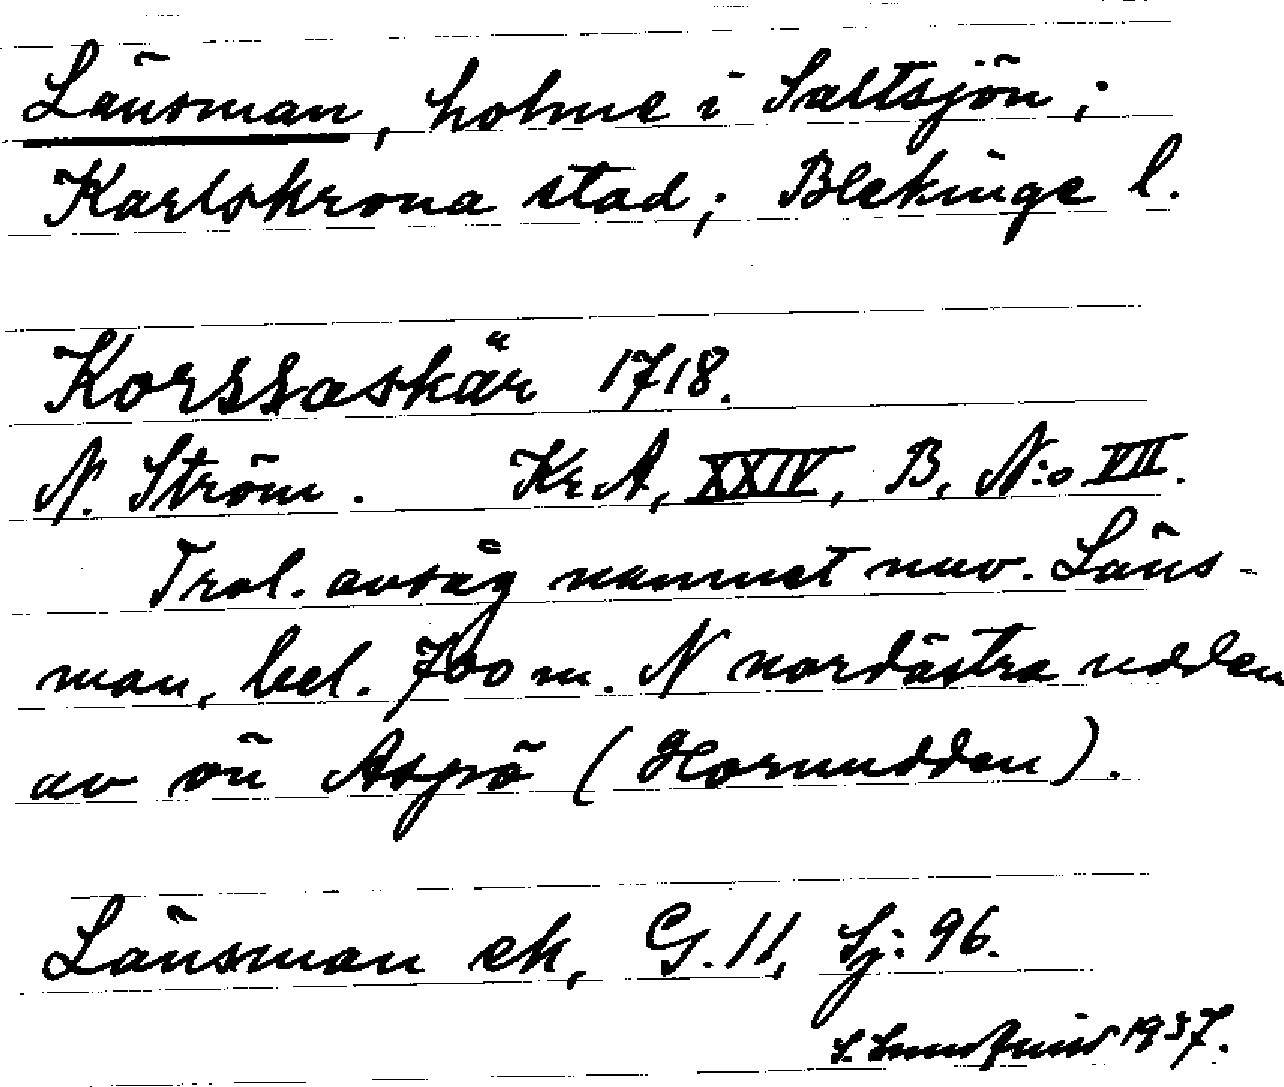 Länsman, holme i Saltsjön;
Karlskrona stad; Blekinge l.
Korssaskär 1718.
N. Ström. Kr. A, XXIV, B, N:o VII.
Trol. avsåg namnet nuv. Läns-
man, bel. 700 m. N nordöstra udden
av ön Aspö (Hornudden).
Länsman ek, G. 11, Sj: 96.
1937.